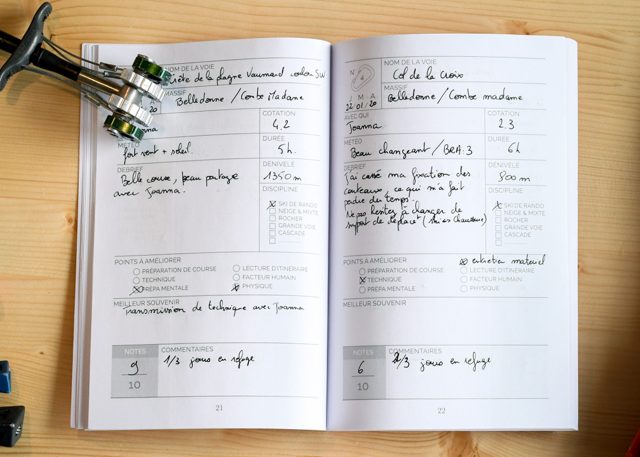 NOM DE LA VOIE
Crête de la plagne Vaumard couloir SW
MASSIF
Belledonne / Combe Madame
20
COTATION
Joanna
4.2
MÉTÉO
DURÉE
fort vent + soleil.
5h.
DEBRIEF
DÉNIVELÉ
Belle course, beau partage
1350m
avec Joanna.
DISCIPLINE
X SKI DE RANDO
NEIGE & MIXTE
ROCHER
GRANDE VOIE
CASCADE
POINTS À AMÉLIORER
PRÉPARATION DE COURSE
LECTURE D'ITINÉRAIRE
TECHNIQUE
FACTEUR HUMAIN
X PRÉPA MENTALE
X PHYSIQUE
MEILLEUR SOUVENIR
Transmission de technique avec Joanna
NOTES
COMMENTAIRES
9
1/3 jours en refuge
10
21
NOM DE LA VOIE
N
Col de la Croix
MASSIF
J M A
Belledonne / Combe madame
22 01 20
AVEC QUI
COTATION
Joanna
2.3
MÉTÉO
DURÉE
Beau changeant / BRA:3
6h
DEBRIEF
DÉNIVELÉ
J'ai cassé ma fixation des
800m
couteaux, ce qui m'a fait
DISCIPLINE
perdre du temps.
X SKI DE RANDO
Ne pas hésiter à changer de
NEIGE & MIXTE
support de déplact (ski en chaussures)
ROCHER
GRANDE VOIE
CASCADE
POINTS À AMÉLIORER
X entretien materiel
PRÉPARATION DE COURSE
LECTURE D'ITINÉRAIRE
X TECHNIQUE
FACTEUR HUMAIN
PRÉPA MENTALE
PHYSIQUE
MEILLEUR SOUVENIR
NOTES
COMMENTAIRES
6
2/3 jours en refuge
10
22